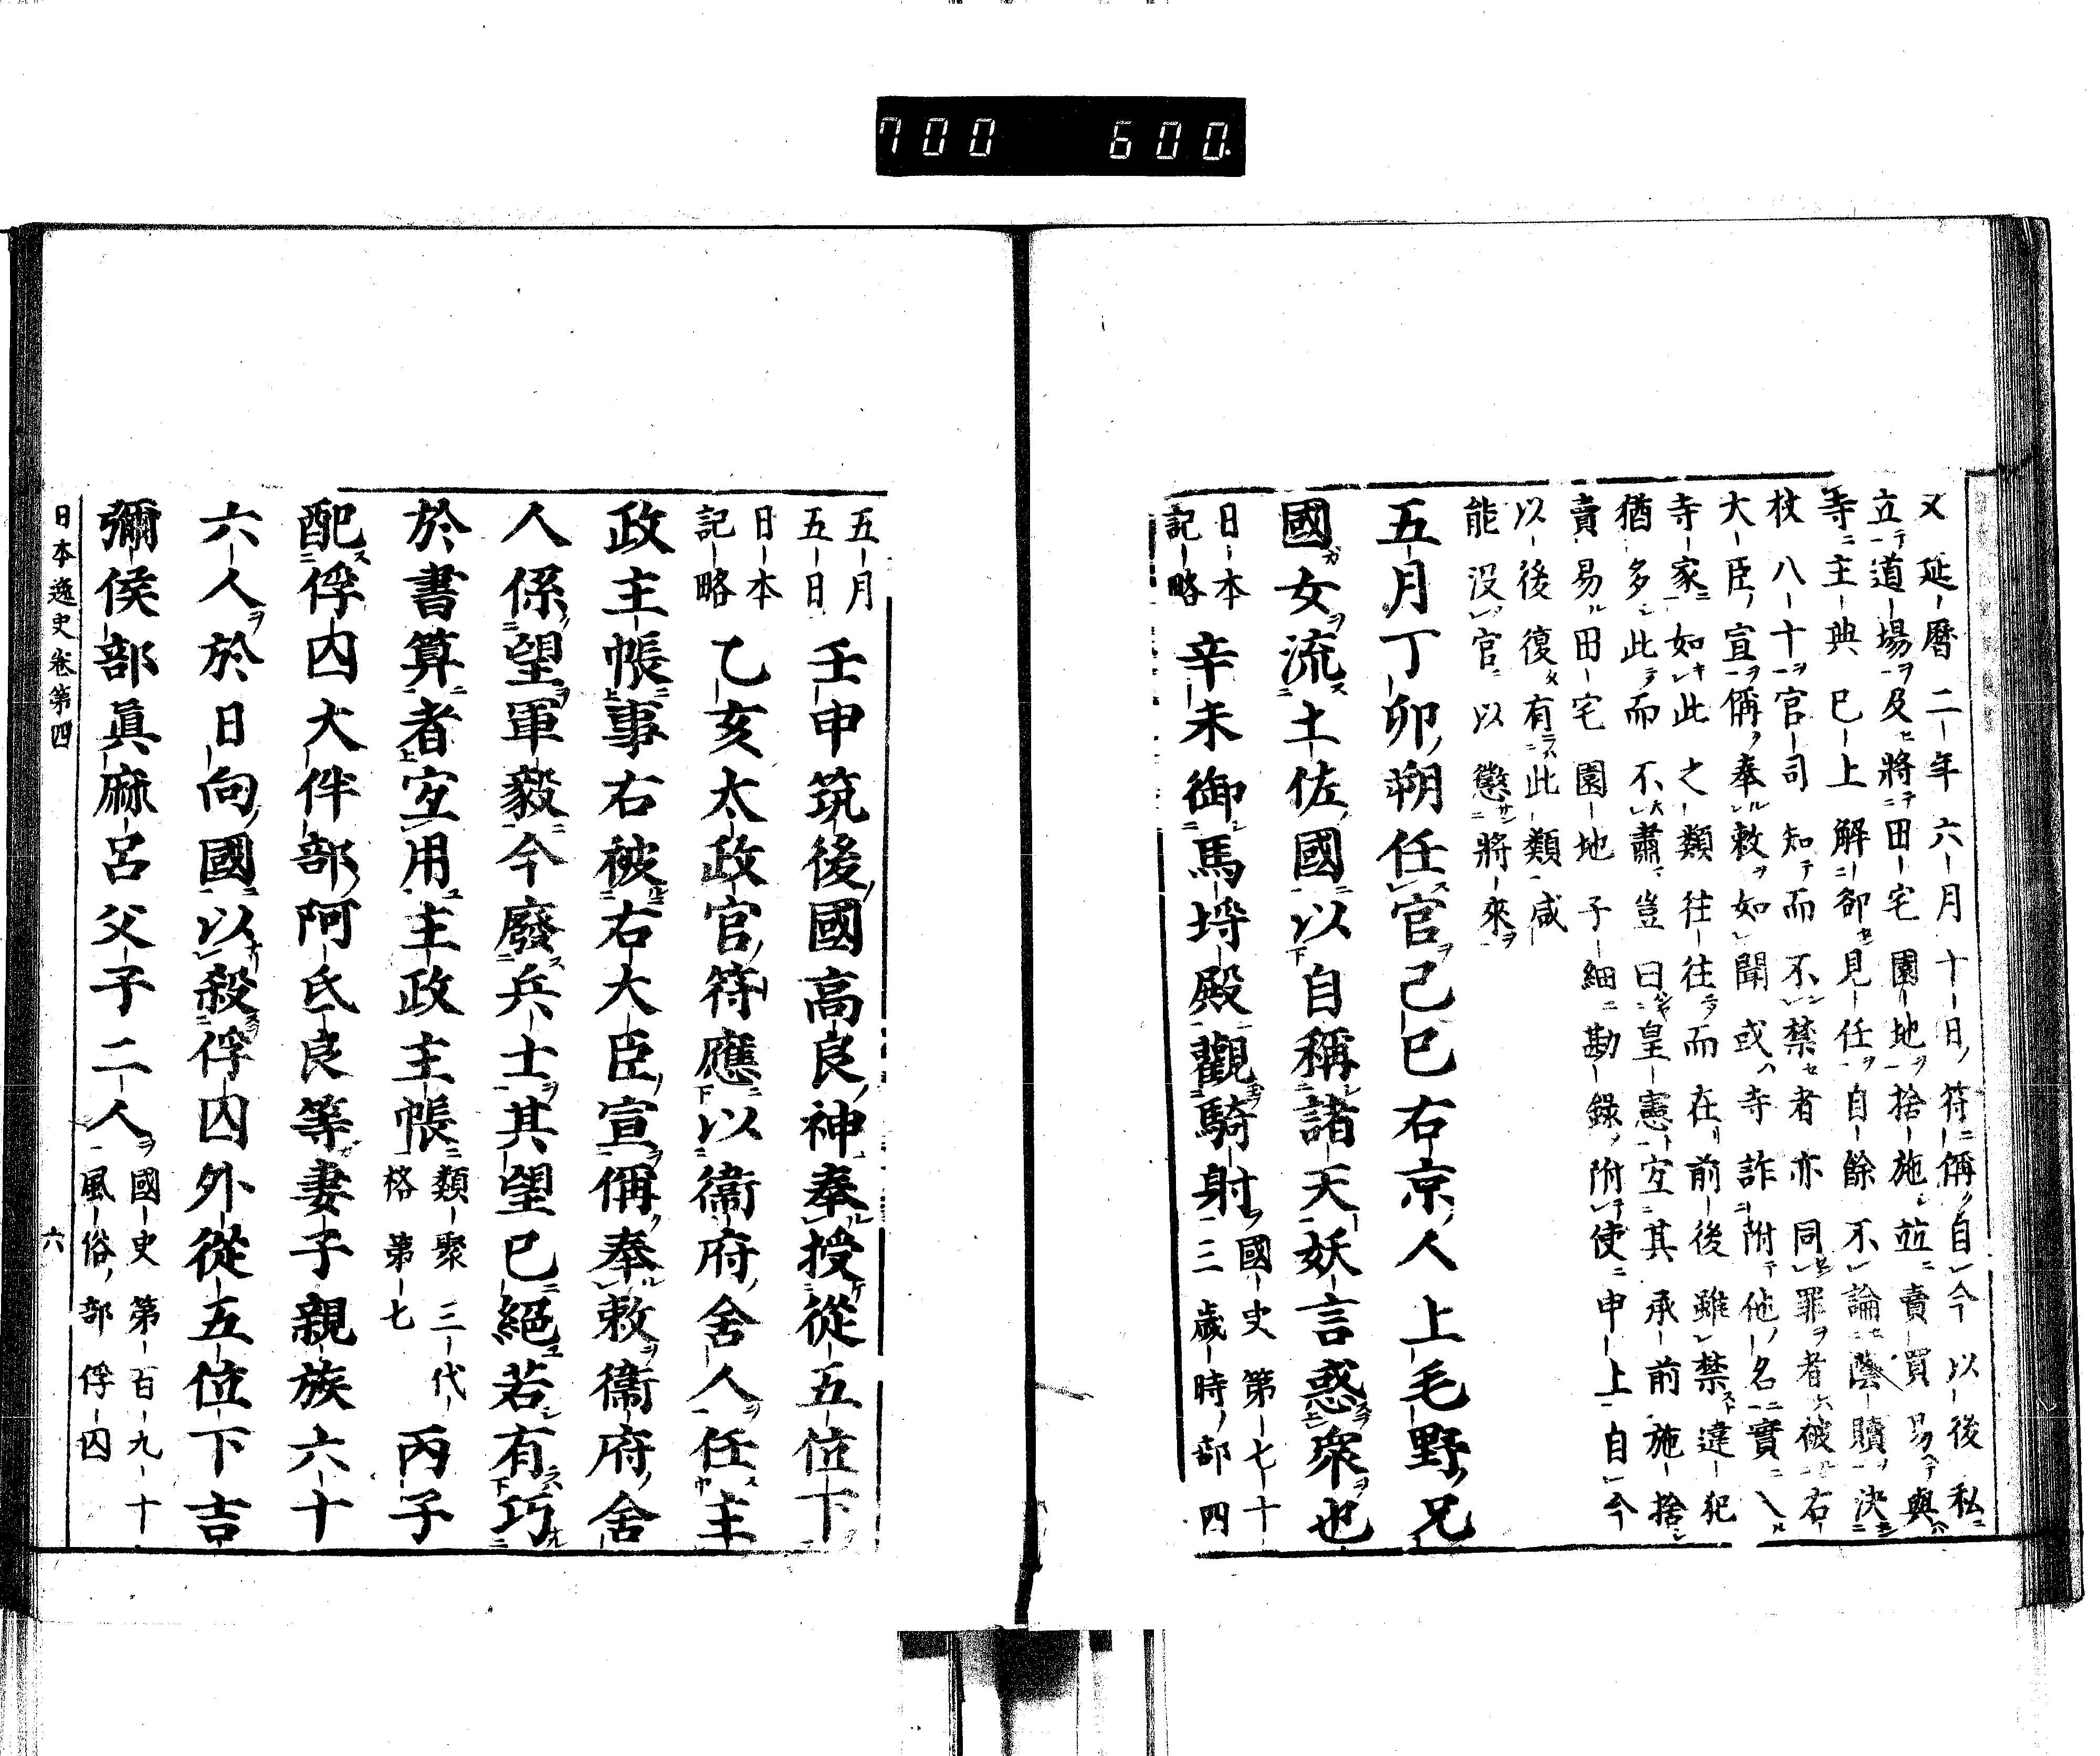 700 600
又延曆二年六月十日符偁自今以後私
立道場及將田宅園地捨施並賣買易與
寺主典已上解卻見任自餘不論蔭贖決
杖八十官司知而不禁者亦同罪者被右
大臣宣偁奉敕如聞或寺詐附他名實入
寺家如此之類往往而在前後雖禁違犯
猶多此而不肅豈曰皇憲宜其承前施捨
賣易田宅園地子細勘錄附使申上自今
以後復有此類咸
能没官以懲將來
五月丁卯朔任官己巳右京人上毛野兄
國女流土佐國以自稱諸天妖言惑衆也
日本
記略
辛未御馬埓殿觀騎射
國史第七十
三歲時部四
五月
五日
壬申筑後國高良神奉授從五位下
日本
記略
乙亥太政官符應以衞府舍人任主
政主帳事右被右大臣宣偁奉敕衞府舍
人係望軍毅今廢兵士其望已絕若有巧
於書算者宜用主政主帳
類聚三代
格第七
丙子
配俘囚大伴部阿氐良等妻子親族六十
六人於日向國以殺俘囚外從五位下吉
彌侯部眞麻呂父子二人
國史第百九十
風俗部俘囚
日本逸史卷第四
六